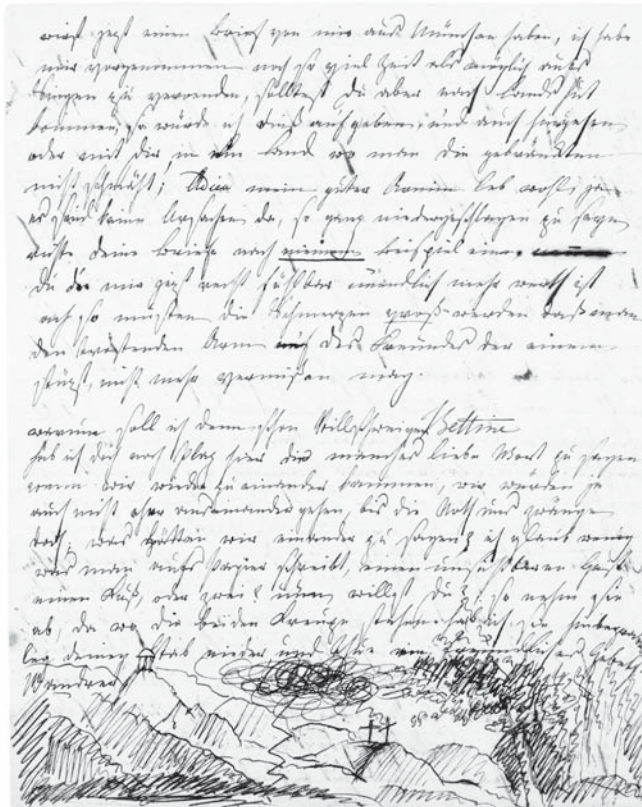 wirst jezt einen Brief von mir aus München haben, ich habe
mir vorgenommen noch so viel Zeit als möglich aufs
Singen zu verwenden, solltest du aber nach Landshut
kommen, so würde ich dieß aufgeben, und auch hingehen
oder mit dir in ein Land wo man die gebrändten
nicht schmäht; Adieu mein guter Armin leb wohl, ja
es sind keine Ursachen da, so ganz niedergeschlagen zu sein
deine Briefe nach meinem Beispiel ein,
du die mir jezt recht fühlbar unendlich mehr werth ist
ach so müsten die Schmerzen groß werden daß man
den tröstenden Arm des Freundes der einen
stüzt, nicht mehr vermißen mag.
warum soll ich denn schon Stillschweigen Bettine
hab ich doch noch Plaz hier dir manches liebe Wort zu sagen
wenn wir wieder zu einander kommen, wir werden ja
auch nicht eher auseinander gehen, bis die Noth uns zwänge
doch, was hätten wir einander zu sagen? ich glaub wenig
was man aufs Papier schreibt, einen unsichtbaren Geist
einen Kuß, oder zwei? nun willst du? so nehm sie
ab, da wo die beiden Kreuze stehen hab ich sie
leg deinen Stab nieder und ein freundliches Gebet
Wandrer